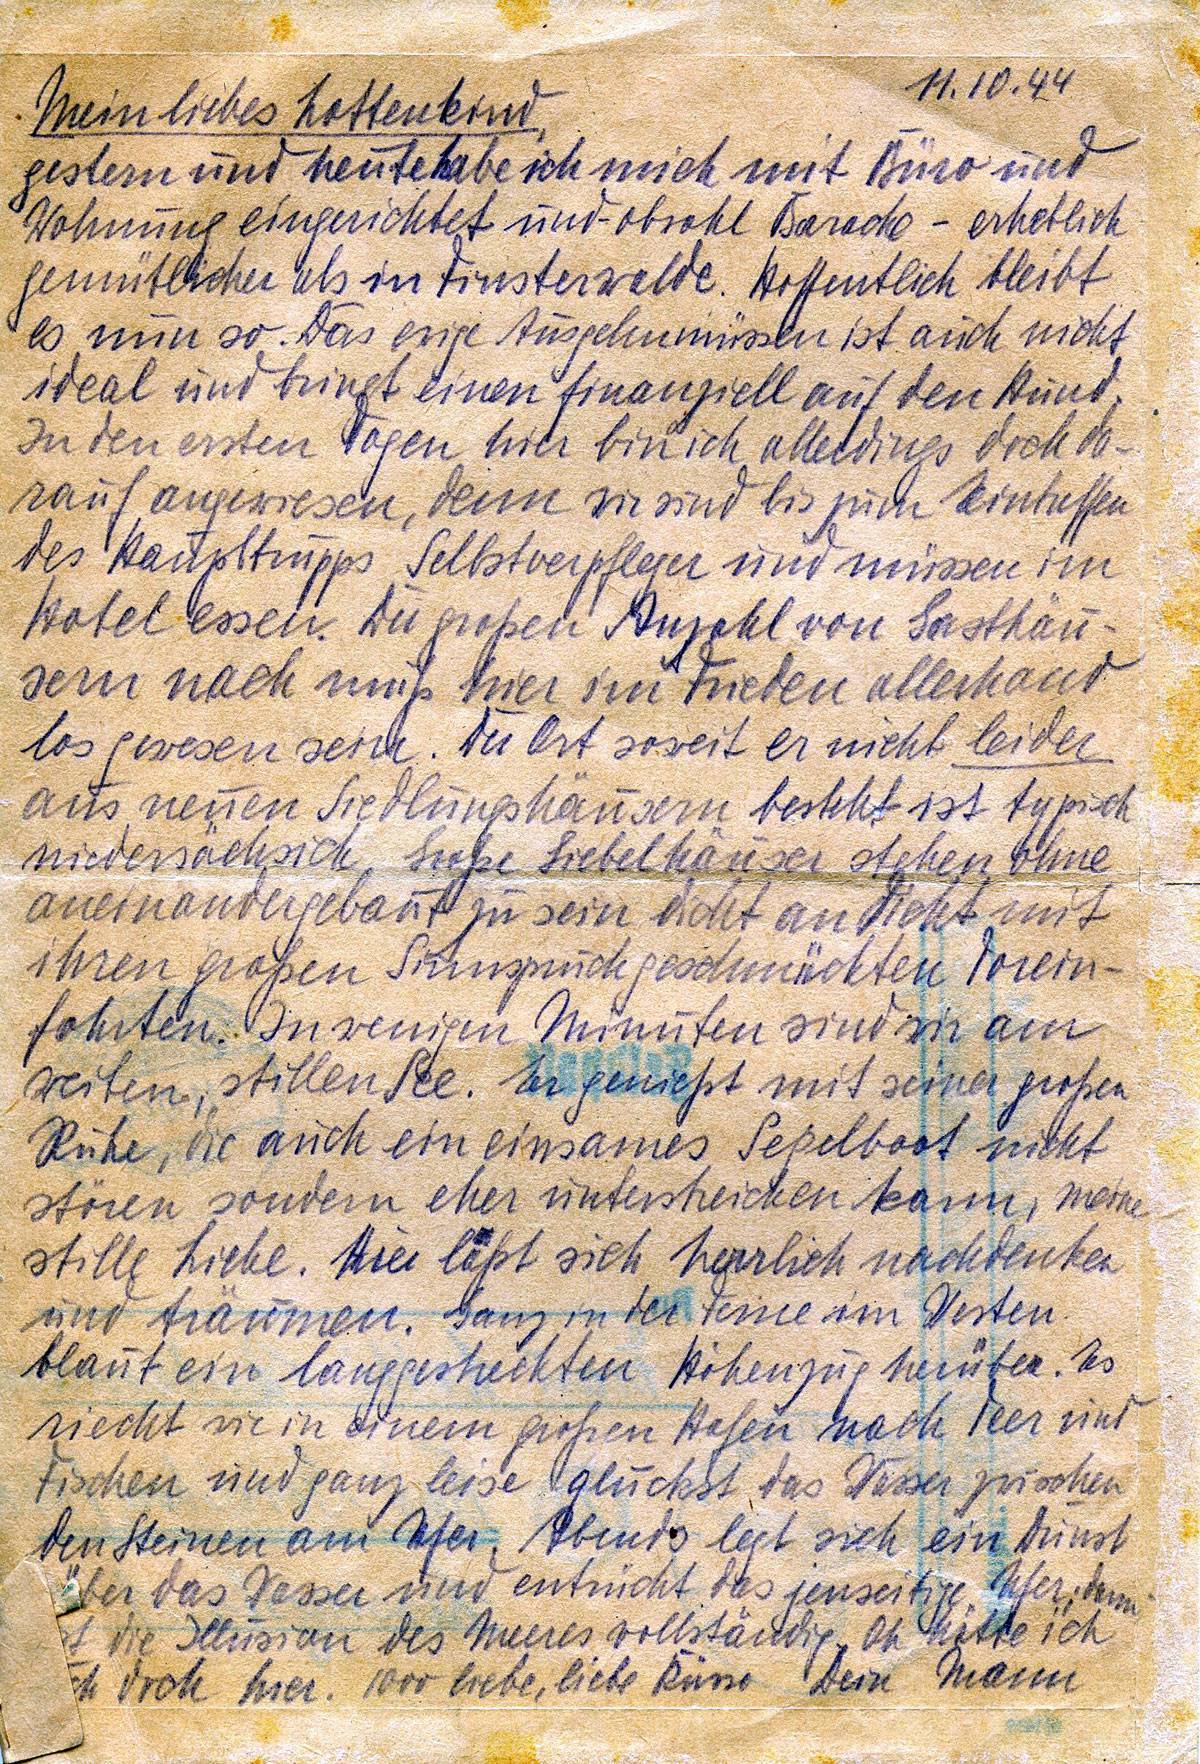 11.10.44
Mein liebes Lottenkind,
gestern und heute habe ich mich mit Büro und
Wohnung eingerichtet und - obwohl Baracke - erheblich
gemütlicher als in Finsterwalde. Hoffentlich bleibt
es nun so. Das ewige Ausgehenmüssen ist auch nicht
ideal und bringt einen finanziell auf den Hund.
In den ersten Tagen hier bin ich allerdings doch da-
rauf angewiesen, denn wir sind bis zum Eintreffen
des Haupttrupps Selbstverpfleger und müssen im
Hotel essen. Der großen Anzahl von Gasthäu-
sern nach muß hier im Frieden allerhand
los gewesen sein. Der Ort soweit er nicht leider
aus neuen Siedlungshäusern besteht ist typisch
niedersächsich. Große Giebelhäuser stehen ohne
aneinandergebaut zu sein dicht an dicht mit
ihren großen Sinnspruchgeschmückten Torein-
fahrten. In wenigen Minuten sind wir am
weiten, stillen See. Er genießt mit seiner großen
Ruhe, die auch ein einsames Segelboot nicht
stören sondern eher unterstreichen kann, meine
stille Liebe. Hier läßt sich herrlich nachdenken
und träumen. Ganz in der Ferne im Westen
blaut ein langgestreckten Höhenzug herüber. Es
riecht wie in einem großen Hafen nach Teer und
Fischen und ganz leise gluckst das Wasser zwischen
den Steinen am Ufer. Abends legt sich ein Dunst
über das Wasser und entrückt das jenseitige Ufer, dann
ist die Illusion des Meeres vollständig. Oh hätte ich
Dich doch hier. 1000 liebe, liebe Küsse Dein Mann